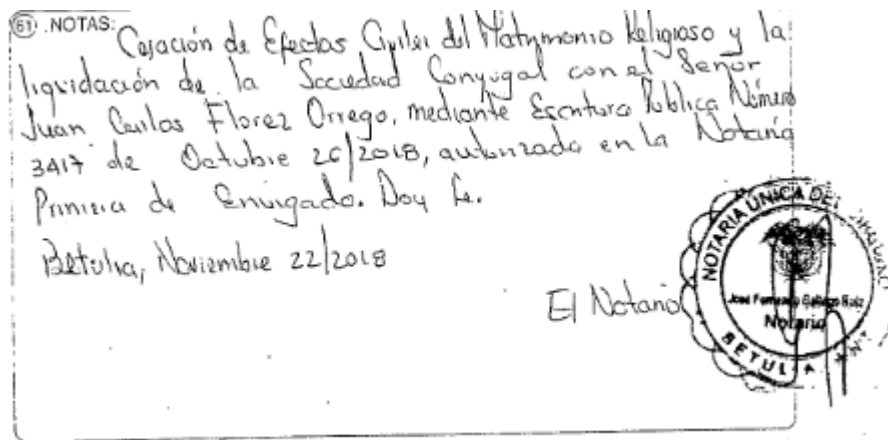 61 .NOTAS: Cesación de Efectos Civiles del Matrimonio Religioso y la
liquidación de la Sociedad Conyugal con el Señor
Juan Carlos Florez Orrego, mediante Escritura Pública Número
3417 de Octubre 26/2018, autorizada en la Notaría
Primera de Envigado. Doy fe.
Betulia, Noviembre 22/2018
El Notario
NOTARIA ÚNICA DEL
Notario
BETULIA